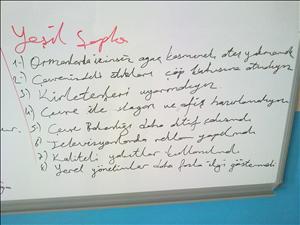 Yeşil Şapka
1-) Ormanlarda izinsiz ağaç kesmemek, ateş yakmamak
2-) Çevremizdeki atıkları çöp kutusuna atmalıyız
3-) Kirletenleri uyarmalıyız
4) Çevre ile slogan ve afiş hazırlamalıyız
5) Çevre Bakanlığı daha aktif çalışmalı
6) Televizyonlarda reklam yapılmalı
7) Kaliteli yakıtlar kullanılmalı
8) Yerel yönetimler daha fazla ilgi göstermeli